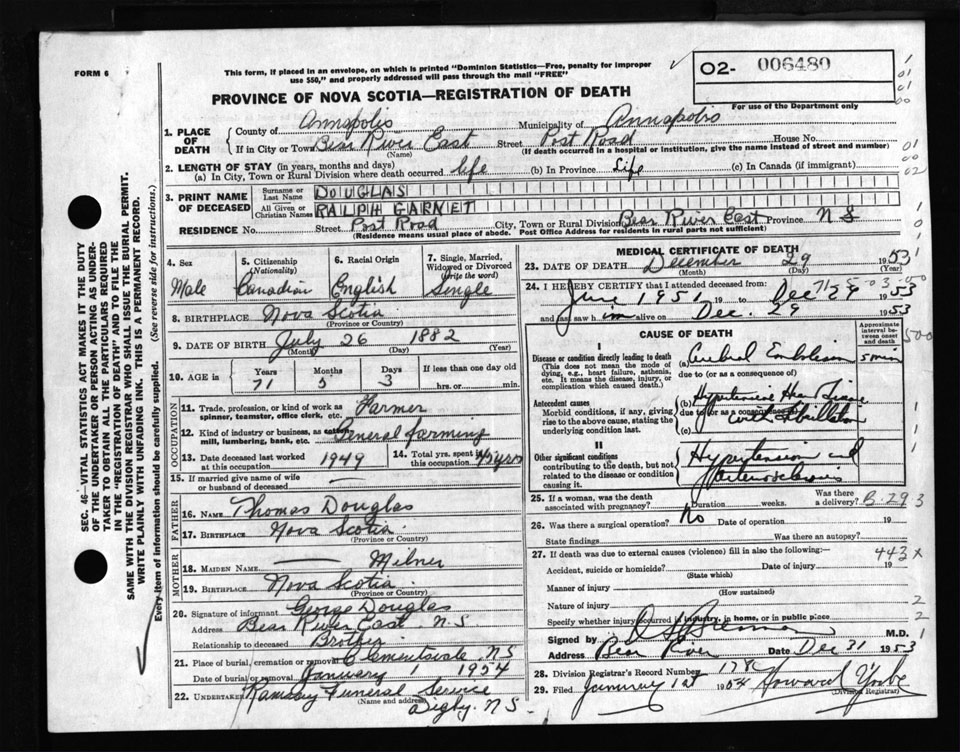 FORM 6
This form, if placed in an envelope, on which is printed "Dominion Statistics—Free, penalty for improper
use $50," and properly addressed will pass through the mail "FREE"
O2- 006480
For use of the Department only
PROVINCE OF NOVA SCOTIA—REGISTRATION OF DEATH
1. PLACE OF DEATH
County of Annapolis Municipality of Annapolis
If in City or Town Bear River East Street Post Road House No.
(Name) (If death occurred in a hospital or institution, give the name instead of street and number)
2. LENGTH OF STAY (in years, months and days)
(a) In City, Town or Rural Division where death occurred life (b) In Province Life (c) In Canada (if immigrant)
3. PRINT NAME OF DECEASED
Surname or Last Name DOUGLAS
All Given or Christian Names RALPH GARNET
RESIDENCE No. Street Post Road City, Town or Rural Division Bear River East Province N S
(Residence means usual place of abode. Post Office Address for residents in rural parts not sufficient)
4. Sex Male
5. Citizenship (Nationality) Canadian
6. Racial Origin English
7. Single, Married, Widowed or Divorced (write the word) Single
8. BIRTHPLACE Nova Scotia
(Province or Country)
9. DATE OF BIRTH July 26 1882
(Month) (Day) (Year)
10. AGE in Years Months Days If less than one day old
71 5 3 hrs. or min.
OCCUPATION
11. Trade, profession, or kind of work as spinner, teamster, office clerk, etc. Farmer
12. Kind of industry or business, as cotton mill, lumbering, bank, etc. General farming
13. Date deceased last worked at this occupation 1949
14. Total yrs. spent in this occupation 45 yrs
15. If married give name of wife or husband of deceased —
FATHER
16. NAME Thomas Douglas
17. BIRTHPLACE Nova Scotia
(Province or Country)
MOTHER
18. MAIDEN NAME — Milner
19. BIRTHPLACE Nova Scotia
(Province or Country)
20. Signature of informant George Douglas
Address Bear River East. N.S.
Relationship to deceased Brother
21. Place of burial, cremation or removal Clementsvale, N.S
Date of burial or removal January 1 1954
22. UNDERTAKER Ramsay Funeral Service
(Name and address) Digby. N.S.
MEDICAL CERTIFICATE OF DEATH
23. DATE OF DEATH December 29 1953
(Month) (Day) (Year)
24. I HEREBY CERTIFY that I attended deceased from:
June 1951 19 to Dec 29 1953
and last saw him alive on Dec. 29 1953
CAUSE OF DEATH
Approximate interval between onset and death
I
Disease or condition directly leading to death
(This does not mean the mode of dying, e.g., heart failure, asthenia, etc. It means the disease, injury, or complication which caused death.)
(a) Cerebral Embolism 5 min
due to (or as a consequence of)
Antecedent causes
Morbid conditions, if any, giving rise to the above cause, stating the underlying condition last.
(b) Hypertensive Heart Disease
due to (or as a consequence of) with Fibrillation
(c)
II
Other significant conditions contributing to the death, but not related to the disease or condition causing it.
Hypertension and Arteriosclerosis
25. If a woman, was the death associated with pregnancy? Duration weeks. Was there a delivery?
B-293
26. Was there a surgical operation? No Date of operation 19
State findings Was there an autopsy?
27. If death was due to external causes (violence) fill in also the following: 443x
Accident, suicide or homicide? Date of injury 19
(State which)
Manner of injury
(How sustained)
Nature of injury
Specify whether injury occurred in industry, in home, or in public place
Signed by M.D.
Address Bear River Date Dec 31 1953
28. Division Registrar's Record Number 178
29. Filed January 1st 1954 Howard Yorke
(Division Registrar)
SEC. 46—VITAL STATISTICS ACT MAKES IT THE DUTY
OF THE UNDERTAKER OR PERSON ACTING AS UNDER-
TAKER TO OBTAIN ALL THE PARTICULARS REQUIRED
IN THE "REGISTRATION OF DEATH" AND TO FILE THE
SAME WITH THE DIVISION REGISTRAR WHO SHALL ISSUE THE BURIAL PERMIT.
WRITE PLAINLY WITH UNFADING INK. THIS IS A PERMANENT RECORD.
Every item of information should be carefully supplied. (See reverse side for instructions.)